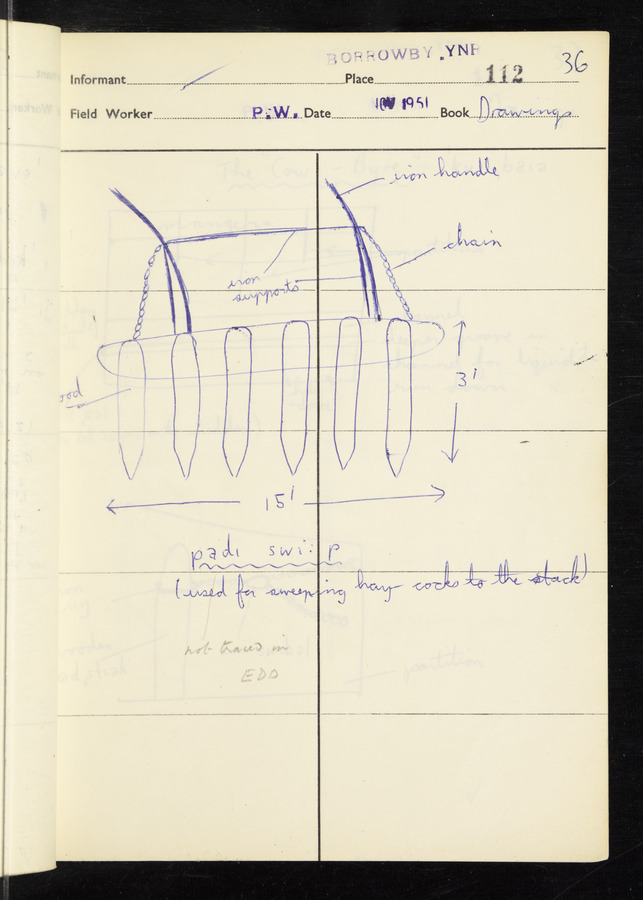 BORROWBY. YNR
36
Informant
Place
112
Field Worker
P.W.
Date
NOV 1951
Book
Drawings
iron handle
chain
iron
supports
3'
15'
padi swi:p
(used for sweeping hay cocks to the stack)
not traced in
EDD
partition